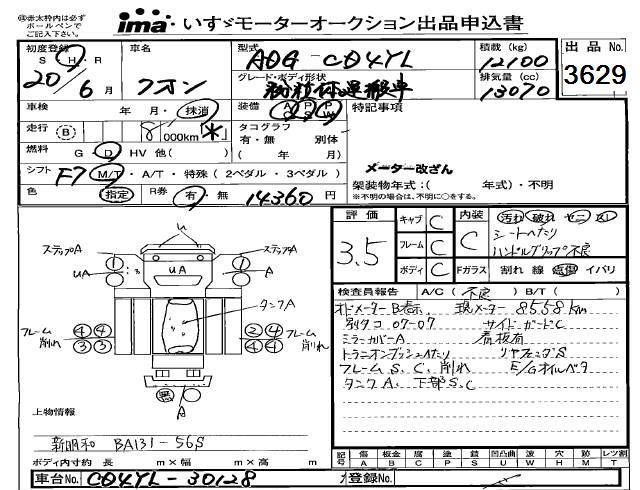 ※赤太枠内は必ず
ボールペンで
ご記入下さい。
ima いすゞモーターオークション出品申込書
初度登録 S H・R 20 年 6 月
車名 クオン
型式 ADG-CD4YL
積載 (kg) 12100
出品 No. 3629
グレード・ボディ形状 粉粒体運搬車
排気量 (cc) 13070
車検 年 月・抹消
装備 A/C P/S P/W
特記事項
走行 B 8,000km *
タコグラフ 有・無 別体
( 年 月)
燃料 G・D HV 他( )
メーター改ざん
シフト F7 M/T・A/T・特殊(2ペダル・3ペダル)
架装物年式:( 年式)・不明
※不明の場合は、不明に○をする。
色 指定 R券 有・無 14360円
評価 3.5
キャブ C
フレーム C
ボディ C
内装 C
汚れ 破れ
シートへたり
ハンドルグリップ不良
Fガラス 割れ 線 飛傷 イバリ
ステップA
ステップA
UA
UA
A
タンクA
フレーム 削れ
4 4
3 3
2 4
4 4
フレーム 削れ
無
A
検査員報告 A/C( 不良 ) B/T( )
オドメーターB表示 現メーター8558km
別タコ07-07 サイドガードC
ミラーカバーA 看板有
トラニオンブッシュへたり リヤフェンダS
フレームS、C、削れ E/Gオイルベタ
タンクA、下部S、C
上物情報
新明和 BA131-56S
ボディ内寸約 長 m×幅 m×高 m
記号 傷A 板金B 腐C 塗P 錆S 凹凸曲U 波W 穴H 跡M レツ割T
車台No. CD4YL-30128
登録No.